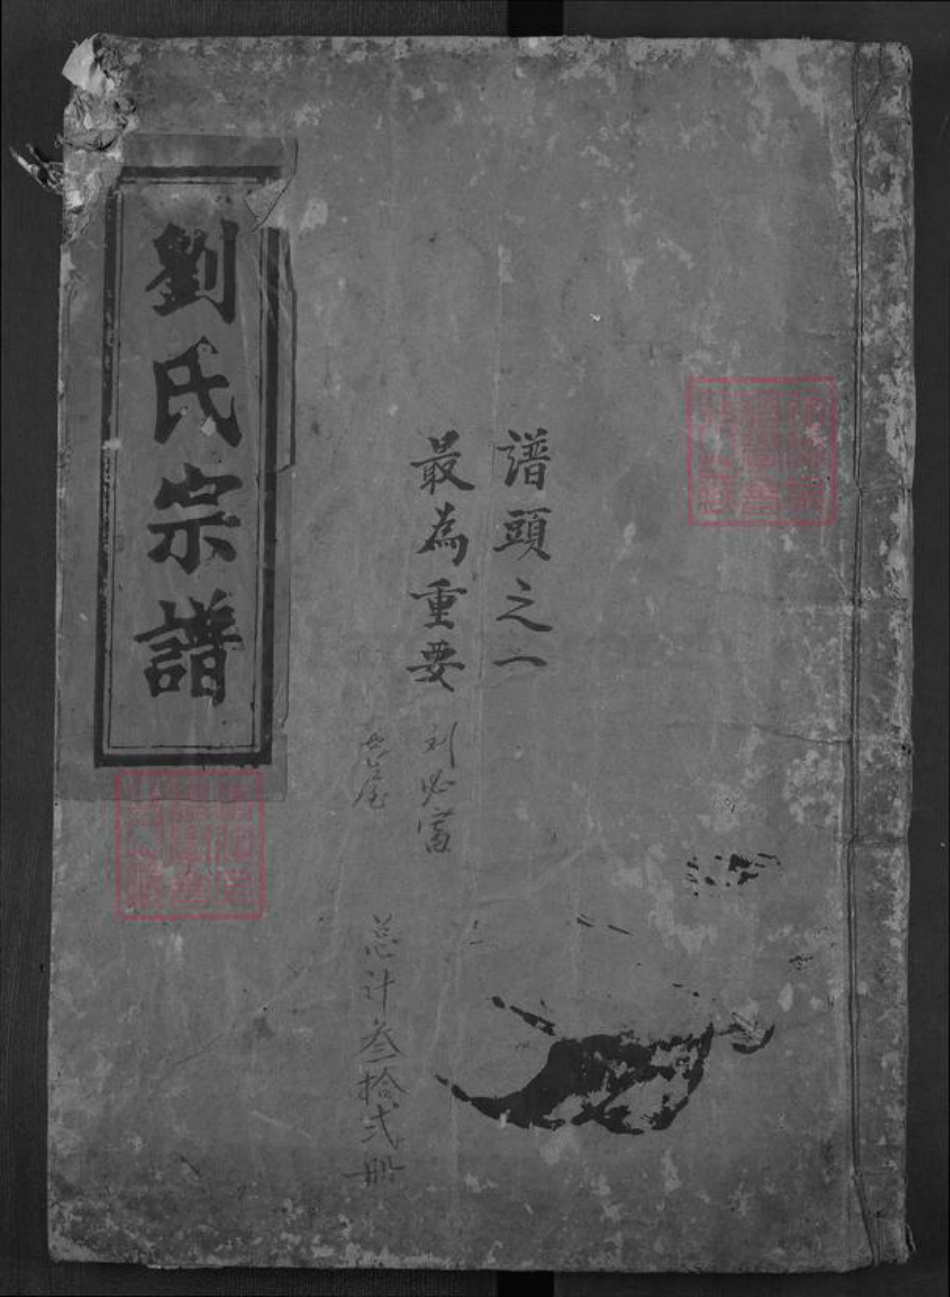 譜頭之一
最為重要
刘必富
总计叁拾弍册
劉氏宗譜